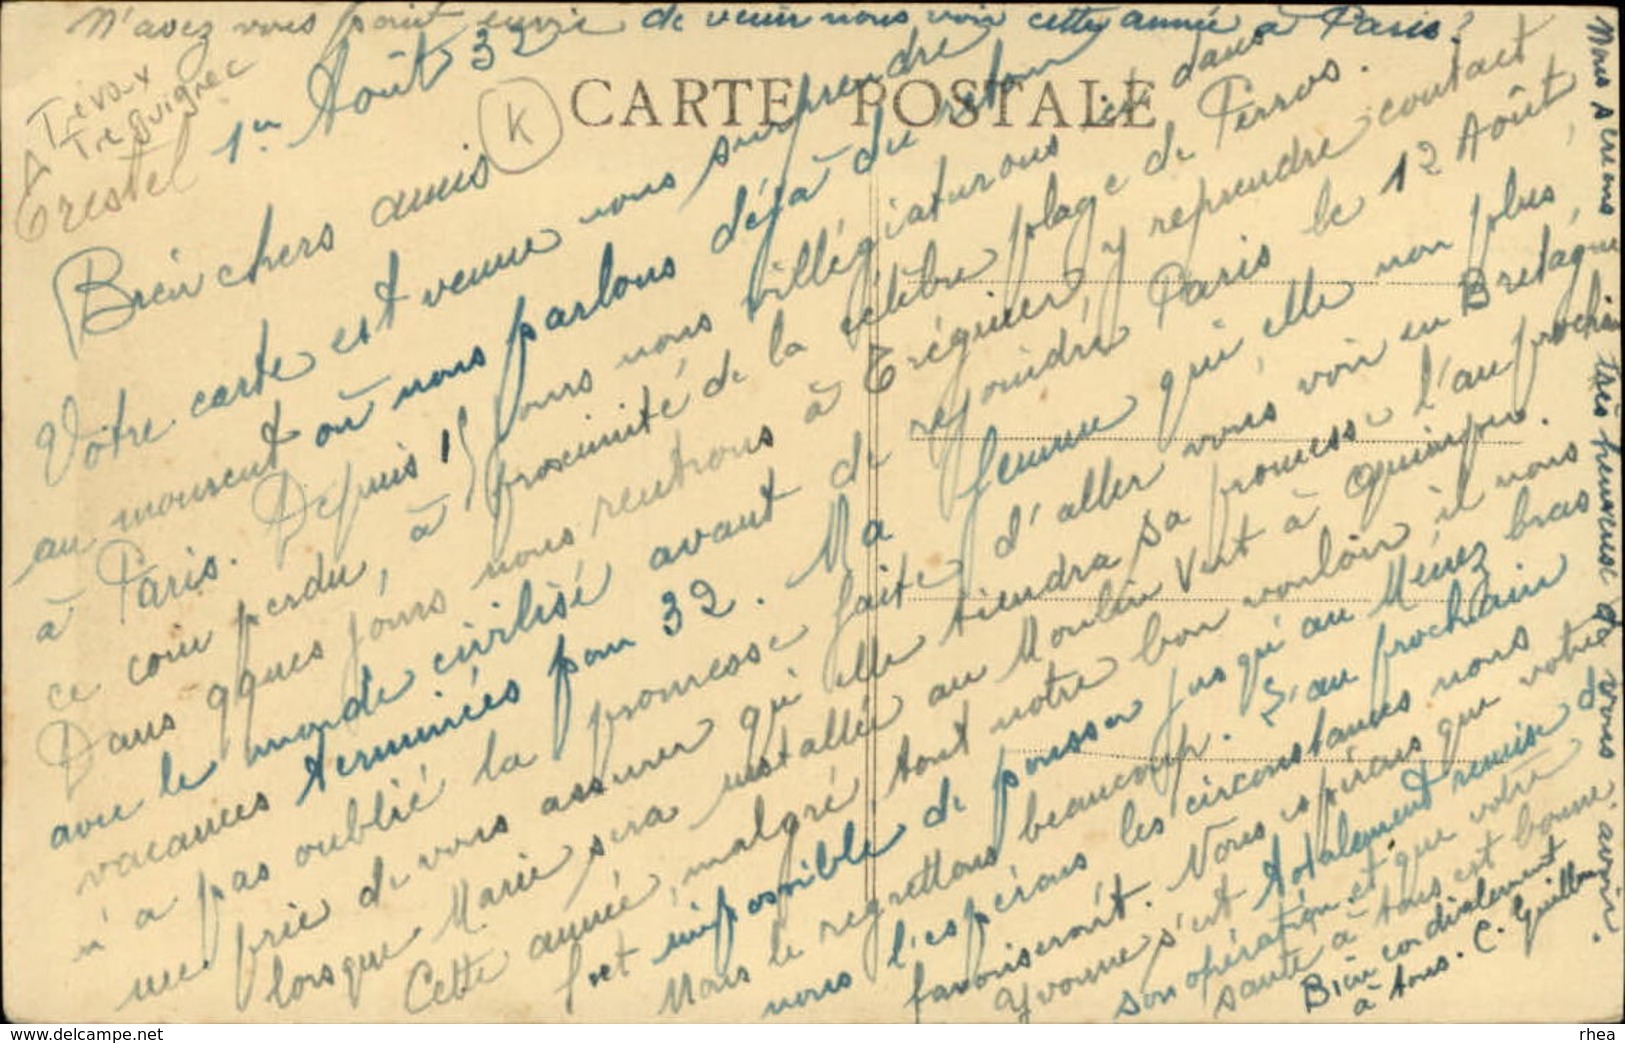 N'avez vous point envie de venir nous voir cette année à Paris?
Trévou
Treguignec
CARTE POSTALE
K
Trestel 1er Août 32
Bien chers amis
Votre carte est venue nous surprendre
au moment où nous parlons déjà du retour
à Paris. Depuis 15 jours nous villégiaturons ici dans
ce coin perdu, à proximité de la célèbre plage de Perros.
Dans qques jours nous rentrons à Tréguier, y reprendre contact
avec le monde civilisé avant de rejoindre Paris le 12 Août
vacances terminées pour 32. Ma femme qui, elle non plus,
n'a pas oublié la promesse faite d'aller vous voir en Bretagne
me prie de vous assurer qu'elle tiendra sa promesse l'an prochain
lorsque Marie sera installée au Moulin Vert à Quimper.
Cette année, malgré tout notre bon vouloir il nous
est impossible de pousser jusqu'au Ménez bras
Nous le regrettons beaucoup. L'an prochain
nous l'espérons les circonstances nous
favoriseront. Nous espérons que votre
Yvonne s'est totalement remise de
son opération et que votre
santé à tous est bonne.
Bien cordialement
à tous. C. Guillou
Nous serions très heureuse de vous avoir.
rhea